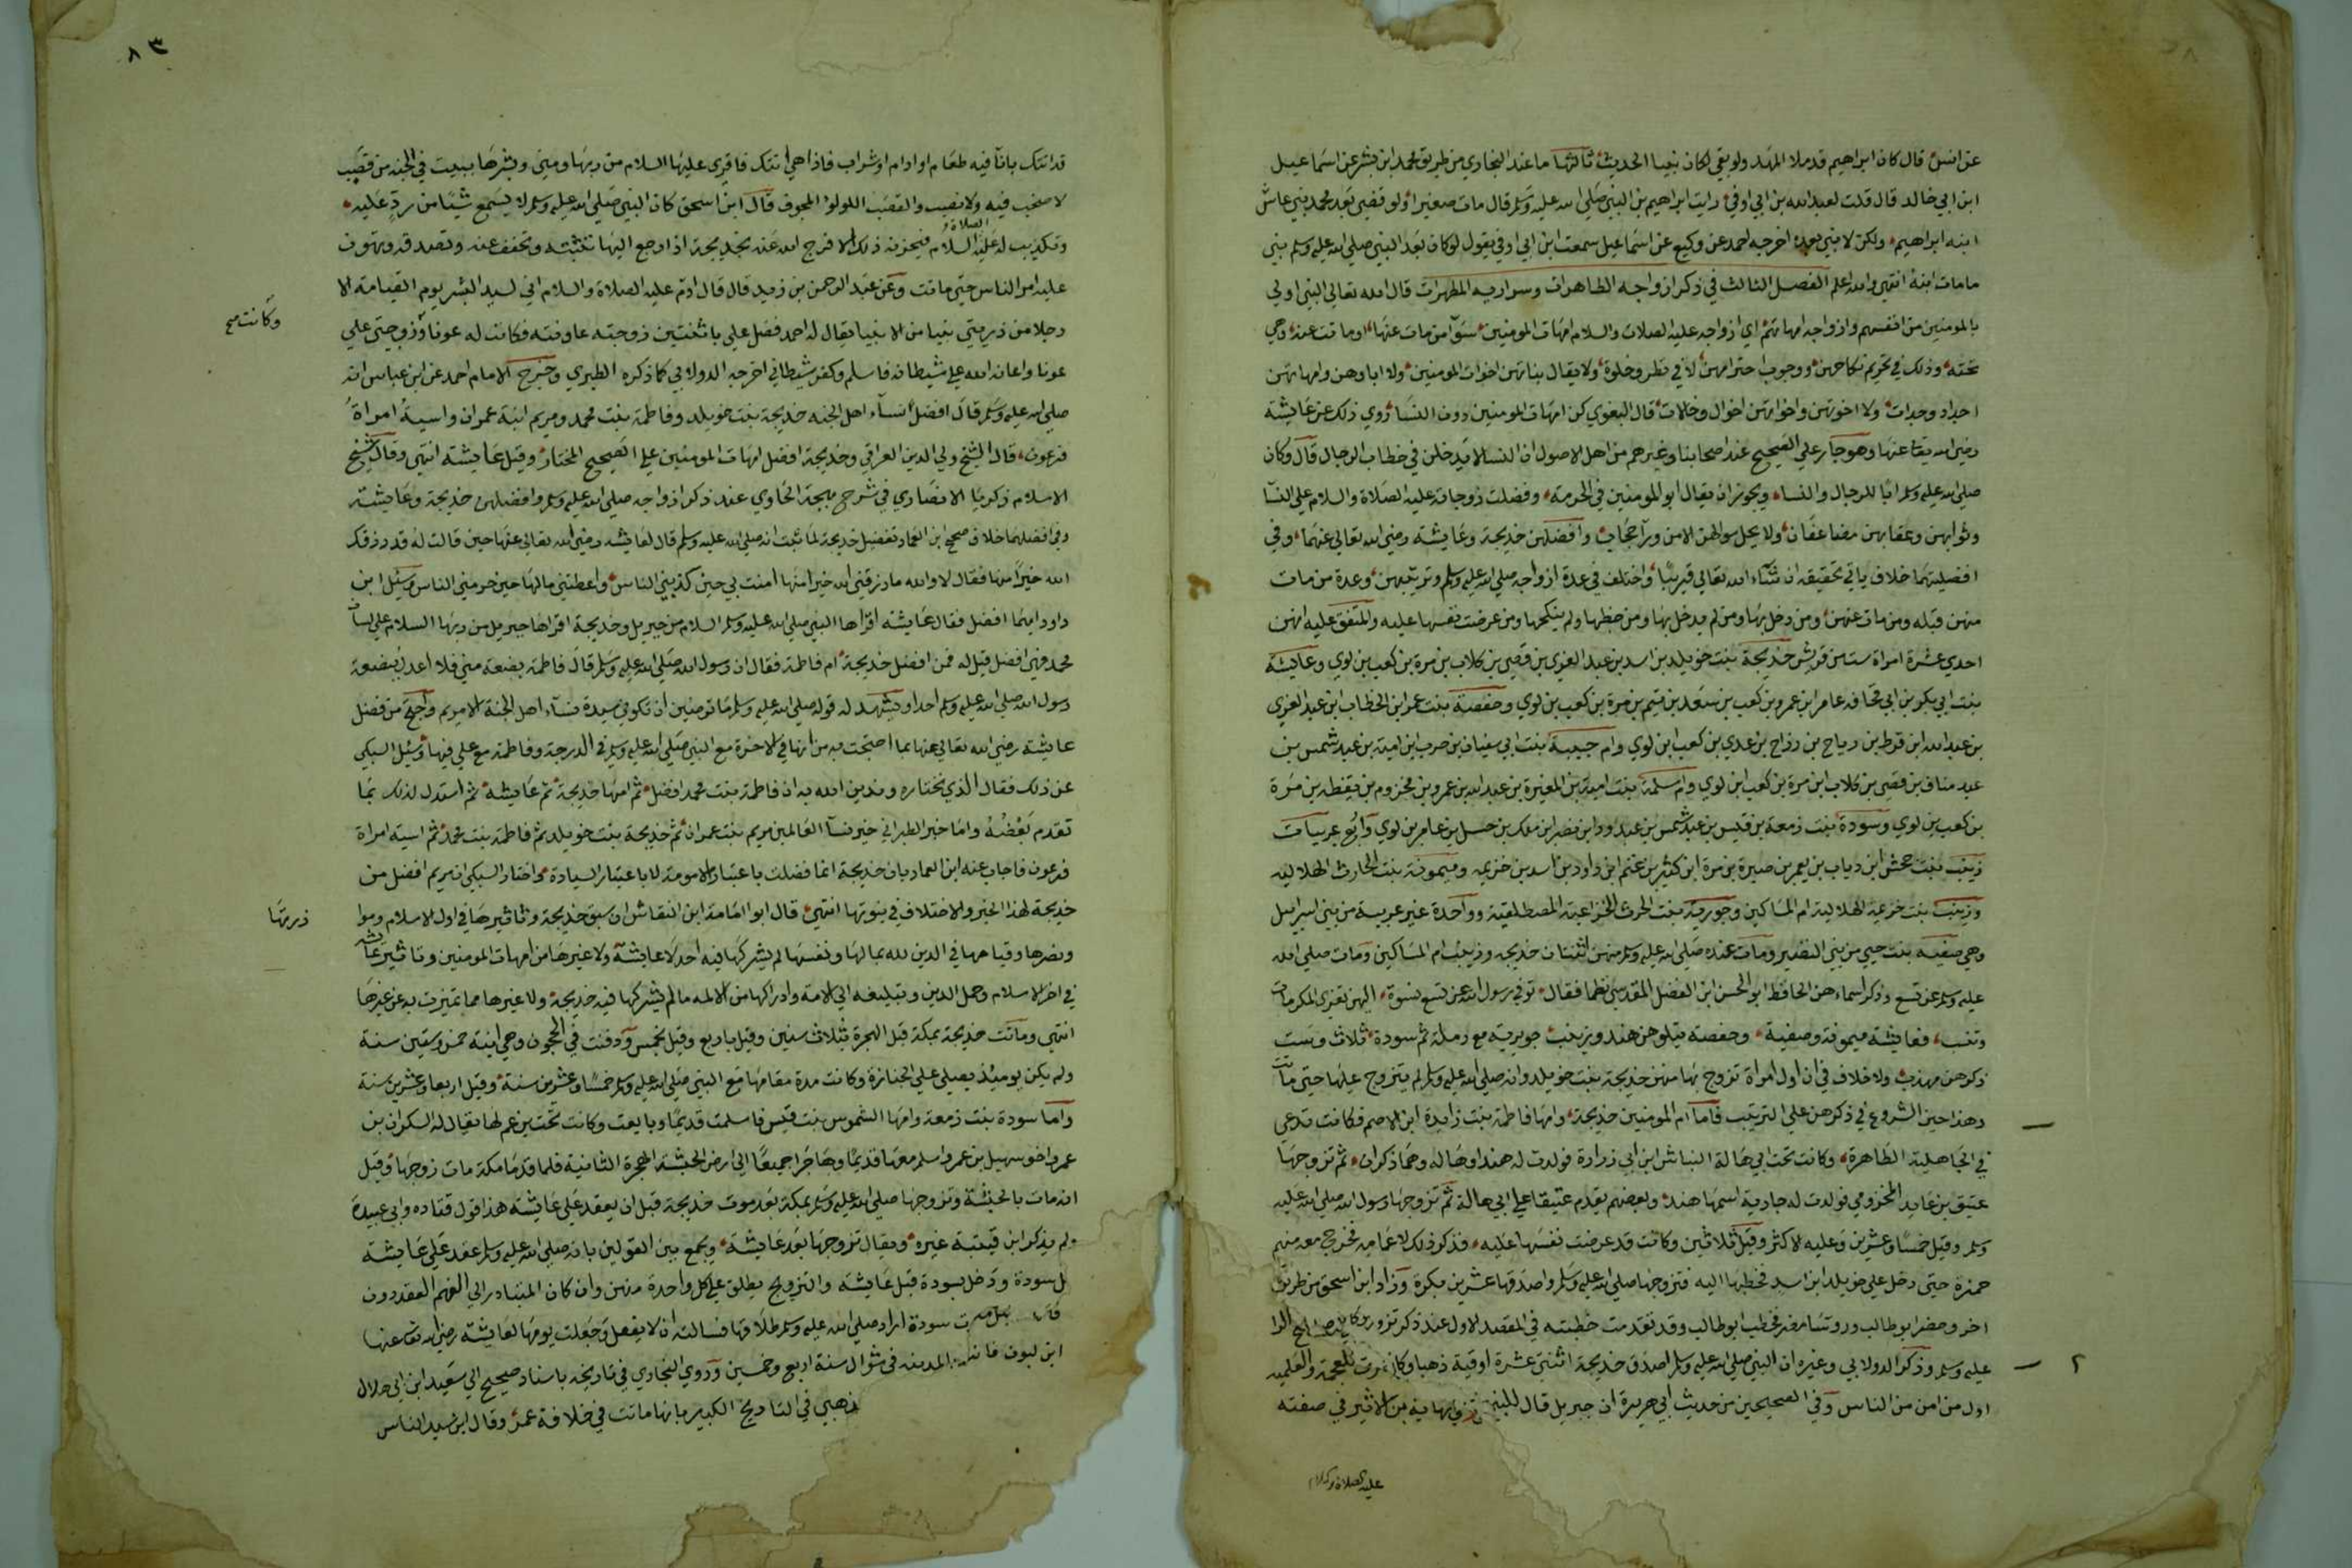 عن انس قال كان ابراهيم قد ملا المهد ولو بقي لكان نبيا الحديث ثالثها ما عند البخاري من طريق محمد ابن بشر عن اسماعيل
ابن ابي خالد قال قلت لعبد الله بن ابي اوفى رايت ابراهيم بن النبي صلى الله عليه وسلم قال مات صغيرا ولو قضي بعد محمد نبي عاش
ابنه ابراهيم ولكن لا نبي بعده اخرجه احمد عن وكيع عن اسماعيل سمعت ابن ابي اوفى يقول لو كان بعد النبي صلى الله عليه وسلم نبي
ما مات ابنه انتهى والله اعلم الفصل الثالث في ذكر ازواجه الطاهرات وسراريه المطهرات قال الله تعالى النبي اولى
بالمومنين من انفسهم وازواجه امهاتهم اي ازواجه عليه الصلاة والسلام امهات المومنين سوآ من مات عنها او ماتت عنه وهي
تحته وذلك في تحريم نكاحهن ووجوب احترامهن لا في نظر وخلوة ولا يقال بناتهن اخوات المومنين ولا اباوهن وامهاتهن
اجداد وجدات ولا اخوتهن واخواتهن اخوال وخالات قال البغوي كن امهات المومنين دون النسا روي ذلك عن عايشة
رضي الله تعا عنها وهو جار على الصحيح عند اصحابنا وغيرهم من اهل الاصول ان النسا لا يدخلن في خطاب الرجال قال وكان
صلى الله عليه وسلم ابا للرجال والنساء ويجوز ان يقال ابو المومنين في الحرمة وفضلت زوجاته عليه الصلاة والسلام على النسآ
وثوابهن وعقابهن مضاعفان ولا يحل سوالهن الا من ورآ حجاب وافضلهن خديجة وعايشة رضي الله تعالى عنهما وفي
افضليتهما خلاف ياتي تحقيقه ان شآء الله تعالى قريبا واختلف في عدة ازواجه صلى الله عليه وسلم وترتيبهن وعدة من مات
منهن قبله ومن مات عنهن ومن دخل بها ومن لم يدخل بها ومن خطبها ولم ينكحها ومن عرضت نفسها عليه والمتفق عليه انهن
احدي عشرة امراة ست من قريش خديجة بنت خويلد بن اسد بن عبد العزي بن قصي بن كلاب بن مرة بن كعب بن لوي وعايشة
بنت ابي بكر بن ابي قحافه عامر ابن عمرو بن كعب بن سعد بن تيم بن مرة بن كعب بن لوي وحفصة بنت عمر ابن الخطاب ابن عبد العزي
بن عبد الله ابن قرط بن رياح بن رزاح بن عدي بن كعب ابن لوي وام حبيبة بنت ابي سفيان بن حرب ابن امية بن عبد شمس بن
عبد مناف بن قصي بن كلاب ابن مرة بن كعب ابن لوي وام سلمة بنت امية بن المغيرة بن عبد الله بن عمرو بن مخزوم بن يقظه بن مرة
بن كعب بن لوي وسودة بنت زمعة بن قيس بن عبد شمس بن عبد ود ابن نصر ابن ملك بن حسل بن عامر بن لوي واربع عربيات
زينب بنت جحش ابن رياب بن يعمر بن صبرة بن مرة ابن كثير بن غنم ابن داود بن اسد بن خزيمه وميمونة بنت الحارث الهلاليه
وزينب بنت خزيمة الهلالية ام المساكين وجويرية بنت الحرث الخزاعية المصطلقية وواحدة غير عربية من بني اسراييل
وهي صفيه بنت حيي من بني النضير ومات عنده صلى الله عليه وسلم منهن اثنتان خديجه وزينب ام المساكين ومات صلى الله
عليه وسلم عن تسع وذكر اسماءهن الحافظ ابو الحسن ابن الفضل المقدسي نظما فقال توفي رسول الله عن تسع نسوة اليهن تعزي المكرمات
وتنسب فعايشة ميمونة وصفية وحفصة يتلوهن هند وزينب جويرية مع رملة ثم سودة ثلاث وست
ذكرهن مهذب ولا خلاف في ان اول امراة تزوج بها منهن خديجة بنت خويلد وانه صلى الله عليه وسلم لم يتزوج عليها حتى ماتت
وهذا حين الشروع في ذكرهن على الترتيب فاما ام المومنين خديجة وامها فاطمة بنت زايدة ابن الاصم فكانت تدعي
في الجاهلية الطاهرة وكانت تحت ابي هالة النباش ابن ابي زرارة فولدت له هندا وهاله وهما ذكران ثم تزوجها
عتيق بن عابد المخزومي فولدت له جارية اسمها هند وبعضهم يقدم عتيقا على ابي هالة ثم تزوجها رسول الله صلى الله عليه
وسلم وقيل خمسا وعشرين وعليه الاكثر وقيل ثلاثين وكانت قد عرضت نفسها عليه فذكر ذلك لاعمامه فخرج معه منهم
حمزة حتى دخل على خويلد ابن اسد فخطبها اليه فتزوجها صلى الله عليه وسلم واصدقها عشرين بكرة وزاد ابن اسحق من طريق
اخر وحضر ابو طالب وروسا مضر فخطب ابو طالب وقد تقدمت خطبته في المقصد الاول عند ذكر تزو
عليه وسلم وذكر الدولابي وغيره ان النبي صلى الله عليه وسلم اصدق خديجة اثنتى عشرة اوقية ذهبا وكانت
اول من امن من الناس وفي الصحيحين من حديث ابي هريرة ان جبريل قال للنبي
عليه الصلاة والسلام
٨٣
قد اتتك بانآ فيه طعام او ادام او شراب فاذا هي اتتك فاقري عليها السلام من ربها ومني وبشرها ببيت في الجنة من قصب
لا صخب فيه ولا نصب والقصب اللولو المجوف قال ابن اسحق كان النبي صلى الله عليه وسلم لا يسمع شيئا من رد عليه
وتكذيب له عليه الصلاة والسلام فيحزنه ذلك الا فرج الله عنه بخديجة اذا رجع اليها تثبته وتخفف عنه وتصدقه وتهون
عليه امر الناس حتى ماتت وعن عبد الرحمن بن زيد قال قال ادم عليه الصلاة والسلام اني لسيد البشر يوم القيامة الا
رجلا من ذريتي نبيا من الانبيا يقال له احمد فضل علي باثنتين زوجته عاونته فكانت له عونا وزوجتي علي
وكانت صح
عونا واعانه الله على شيطانه فاسلم وكفر شيطاني اخرجه الدولابي كما ذكره الطبري وخرج الامام احمد عن ابن عباس انه
صلى الله عليه وسلم قال افضل نسآء اهل الجنه خديجة بنت خويلد وفاطمة بنت محمد ومريم ابنة عمران واسية امراة
فرعون قال الشيخ ولي الدين العراقي وخديجة افضل امهات المومنين على الصحيح المختار وقيل عايشة انتهى وقال شيخ
الاسلام زكريا الانصاري في شرح بهجة الحاوي عند ذكر ازواجه صلى الله عليه وسلم وافضلهن خديجة وعايشة
وفي افضلهما خلاف صحح ابن العماد تفضيل خديجة لما ثبت انه صلى الله عليه وسلم قال لعايشه رضي الله تعالى عنها حين قالت له قد رزقك
الله خيرا منها فقال لا والله ما رزقني الله خيرا منها امنت بي حين كذبني الناس واعطتني مالها حين حرمني الناس وسئل ابن
داود ايهما افضل فقال عايشه اقراها النبي صلى الله عليه وسلم السلام من جبريل وخديجة اقراها جبريل من ربها السلام على لسان
محمد فهي افضل قيل له فمن افضل خديجة ام فاطمة فقال ان رسول الله صلى الله عليه وسلم قال فاطمة بضعة مني فلا اعدل ببضعة
رسول الله صلى الله عليه وسلم احدا ويشهد له قوله صلى الله عليه وسلم اما ترضين ان تكوني سيدة نسآء اهل الجنة الا مريم واحتج من فضل
عايشة رضي الله تعالى عنها بما احتجت به من انها في الاخرة مع النبي صلى الله عليه وسلم في الدرجة وفاطمة مع علي فيها وسئل السبكي
عن ذلك فقال الذي نختاره وندين الله به ان فاطمة بنت محمد افضل ثم امها خديجة ثم عايشة ثم استدل لذلك بما
تقدم بعضه واما خبر الطبراني خير نسآ العالمين مريم بنت عمران ثم خديجة بنت خويلد ثم فاطمة بنت محمد ثم اسية امراة
فرعون فاجاب عنه ابن العماد بان خديجة انما فضلت باعتبار الامومة لا باعتبار السيادة واختار السبكي ان مريم افضل من
خديجة لهذا الخبر والاختلاف في نبوتها انتهى قال ابو امامة ابن النقاش ان سبق خديجة وتاثيرها في اول الاسلام وموا
زرتها
ونصرها وقيامها في الدين لله بمالها ونفسها لم يشركها فيه احد لا عايشة ولا غيرها من امهات المومنين وتاثير عايشه
في اخر الاسلام وحمل الدين وتبليغه الى الامة وادراكها من الامه ما لم يشركها فيه خديجة ولا غيرها مما تميزت به عن غيرها
انتهى وماتت خديجة بمكة قبل الهجرة بثلاث سنين وقيل باربع وقيل بخمس ودفنت في الحجون وهي ابنة خمس وستين سنة
ولم يكن يومئذ يصلي على الجنازة وكانت مدة مقامها مع النبي صلى الله عليه وسلم خمسا وعشرين سنة وقيل اربعا وعشرين سنة
واما سودة بنت زمعة وامها الشموس بنت قيس فاسلمت قديما وبايعت وكانت تحت بن عم لها يقال له السكران بن
عمرو اخو سهيل بن عمرو اسلم معها قديما وهاجرا جميعا الى ارض الحبشة الهجرة الثانية فلما قدما مكة مات زوجها وقيل
انه مات بالحبشة وتزوجها صلى الله عليه وسلم بمكة بعد موت خديجة قبل ان يعقد على عايشة هذا قول قتاده وابي عبيدة
ولم يذكر ابن قتيبة غيره ويقال تزوجها بعد عايشة ويجمع بين القولين بانه صلى الله عليه وسلم عقد على عايشة
بل سودة ودخل بسودة قبل عايشة والتزويج يطلق على كل واحدة منهن وان كان المتبادر الى الفهم العقد دون
سودة اراد صلى الله عليه وسلم طلاقها فسالته ان لا يفعل وجعلت يومها لعايشة رضي الله تعا عنها
المدينه في شوال سنة اربع وخمسين وروي البخاري في تاريخه باسناد صحيح الى سعيد ابن ابي هلال
ذهبي في التاريخ الكبير بانها ماتت في خلافة عمر وقال ابن سيد الناس